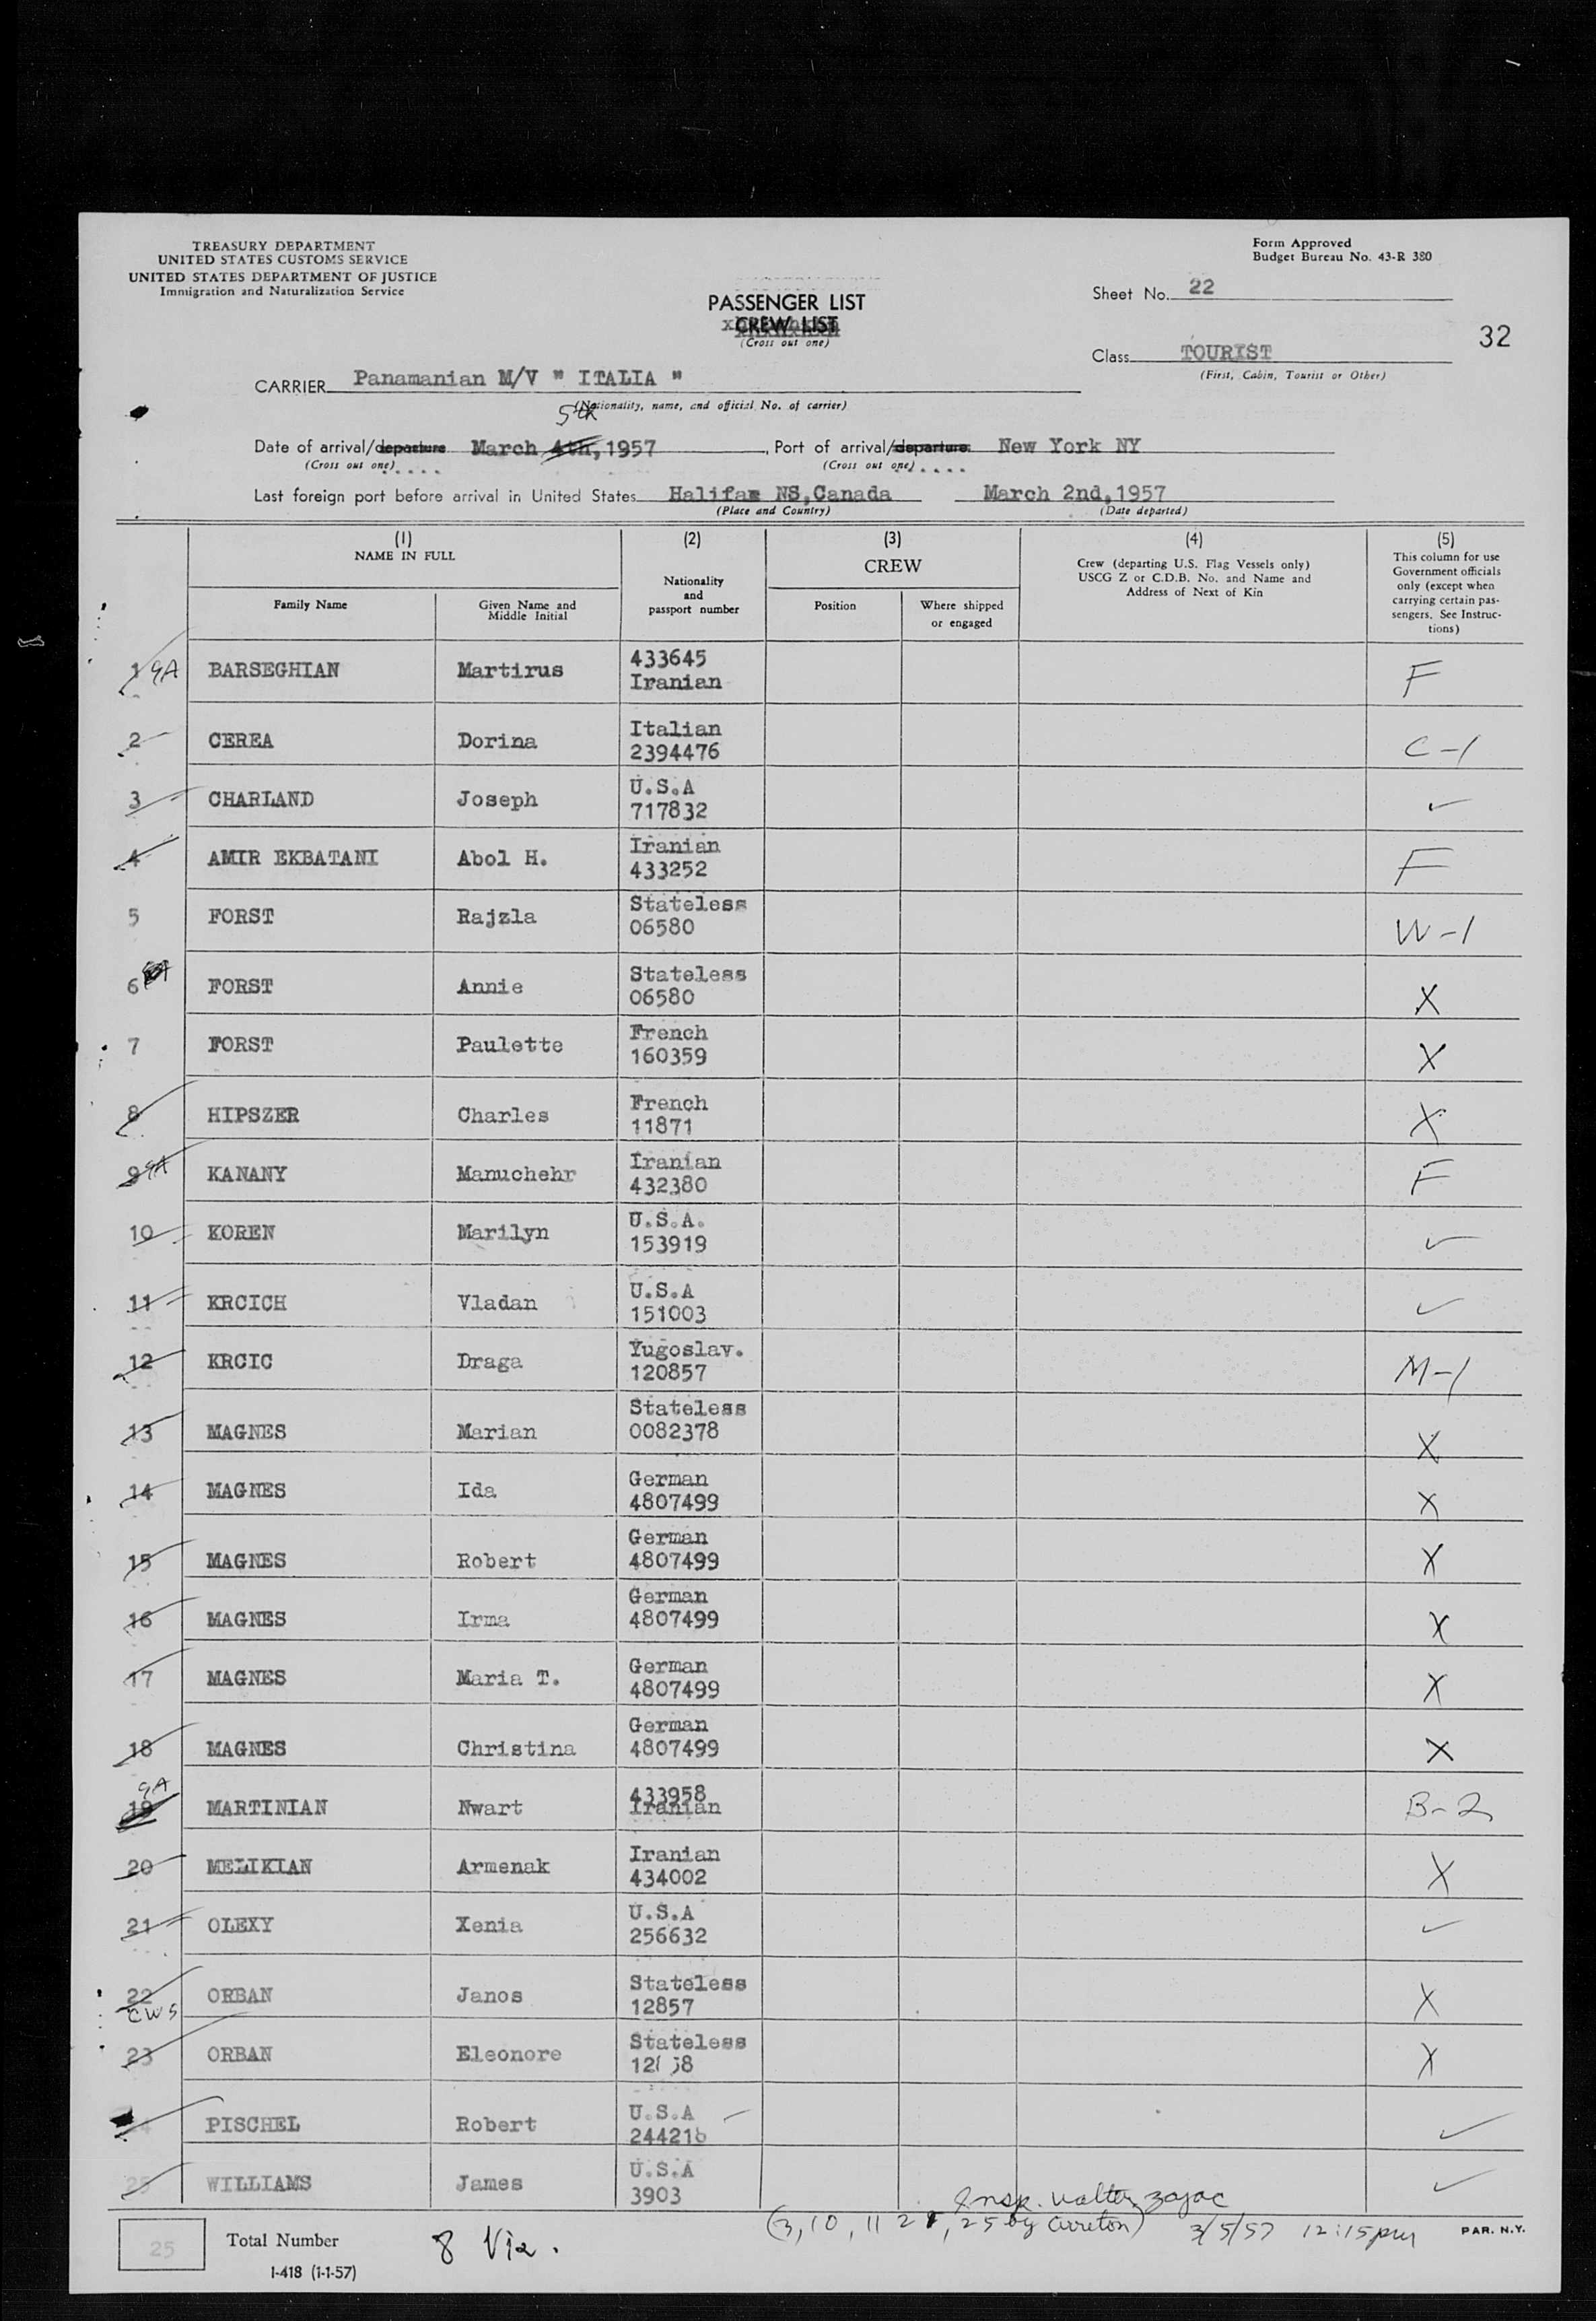 TREASURY DEPARTMENT
UNITED STATES CUSTOMS SERVICE
UNITED STATES DEPARTMENT OF JUSTICE
Immigration and Naturalization Service
Form Approved
Budget Bureau No. 43-R 380
PASSENGER LIST
CREW LIST
(Cross out one)
Sheet No. 22
32
Class TOURIST
(First, Cabin, Tourist or Other)
CARRIER Panamanian M/V " ITALIA "
(Nationality, name, and official No. of carrier)
5th
Date of arrival/departure March 4th, 1957, Port of arrival/departure New York NY
(Cross out one) (Cross out one)
Last foreign port before arrival in United States Halifax NS, Canada March 2nd, 1957
(Place and Country) (Date departed)
(1) (2) (3) (4) (5)
NAME IN FULL
Family Name
Given Name and Middle Initial
Nationality and passport number
CREW
Position
Where shipped or engaged
Crew (departing U.S. Flag Vessels only)
USCG Z or C.D.B. No. and Name and
Address of Next of Kin
This column for use
Government officials
only (except when
carrying certain pas-
sengers. See Instruc-
tions)
1 9A BARSEGHIAN Martirus 433645 Iranian F
2 CEREA Dorina Italian 2394476 C-1
3 CHARLAND Joseph U.S.A 717832 ✓
4 AMIR EKBATANI Abol H. Iranian 433252 F
5 FORST Rajzla Stateless 06580 W-1
6 FORST Annie Stateless 06580 X
7 FORST Paulette French 160359 X
8 HIPSZER Charles French 11871 X
9 9A KANANY Manuchehr Iranian 432380 F
10 KOREN Marilyn U.S.A. 153919 ✓
11 KRCICH Vladan U.S.A 151003 ✓
12 KRCIC Draga Yugoslav. 120857 M-1
13 MAGNES Marian Stateless 0082378 X
14 MAGNES Ida German 4807499 X
15 MAGNES Robert German 4807499 X
16 MAGNES Irma German 4807499 X
17 MAGNES Maria T. German 4807499 X
18 MAGNES Christina German 4807499 X
19 9A MARTINIAN Nwart 433958 Iranian B-2
20 MELIKIAN Armenak Iranian 434002 X
21 OLEXY Xenia U.S.A 256632 ✓
22 CWS ORBAN Janos Stateless 12857 X
23 ORBAN Eleonore Stateless X
PISCHEL Robert U.S.A ✓
25 WILLIAMS James U.S.A 3903 ✓
Insp. Walter Zajac
(3, 10, 11 21, 25 by 3/5/57 12:15pm
PAR. N.Y.
25 Total Number
8 Via.
I-418 (1-1-57)